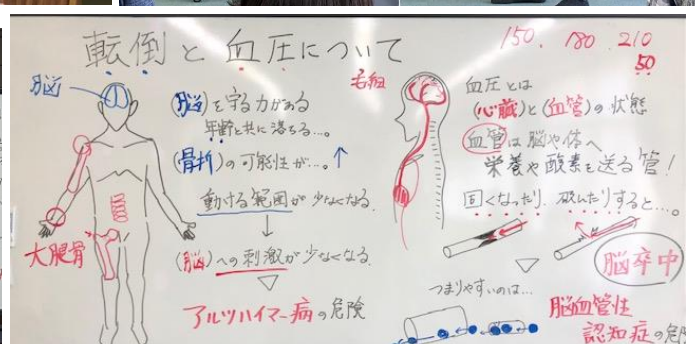 転倒と血圧について
脳
(脳)を守る力がある
年齢と共に落ちる…。
(骨折)の可能性が…。↑
動ける範囲が少なくなる
↓
(脳)への刺激が少なくなる
▽
アルツハイマー病の危険
大腿骨
150. 180 210
50
血圧とは
(心臓)と(血管)の状態
血管は脳や体へ
栄養や酸素を送る管!
固くなったり、破れたりすると…。
▽
脳卒中
つまりやすいのは…
脳血管性
認知症の危